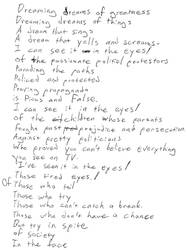 Dreaming dreams of greatness
Dreaming dreams of things
A dream that sings
A dream that yells and screams.
I can see it in the eyes!
of the passionate political protestors
Parading the paths
Policed and protected.
Proving propaganda
is Pious and False.
I can see it in the eyes!
of the children whose parents
fought past prejudice and persecution
Against pretty politicians
Who proved you can't believe everything
you see on TV
I've seen it in the eyes!
Those tired eyes!
Of Those who toil
Those who try
Those who can't catch a break.
Those who don't have a chance
But try in spite
of society
In the face